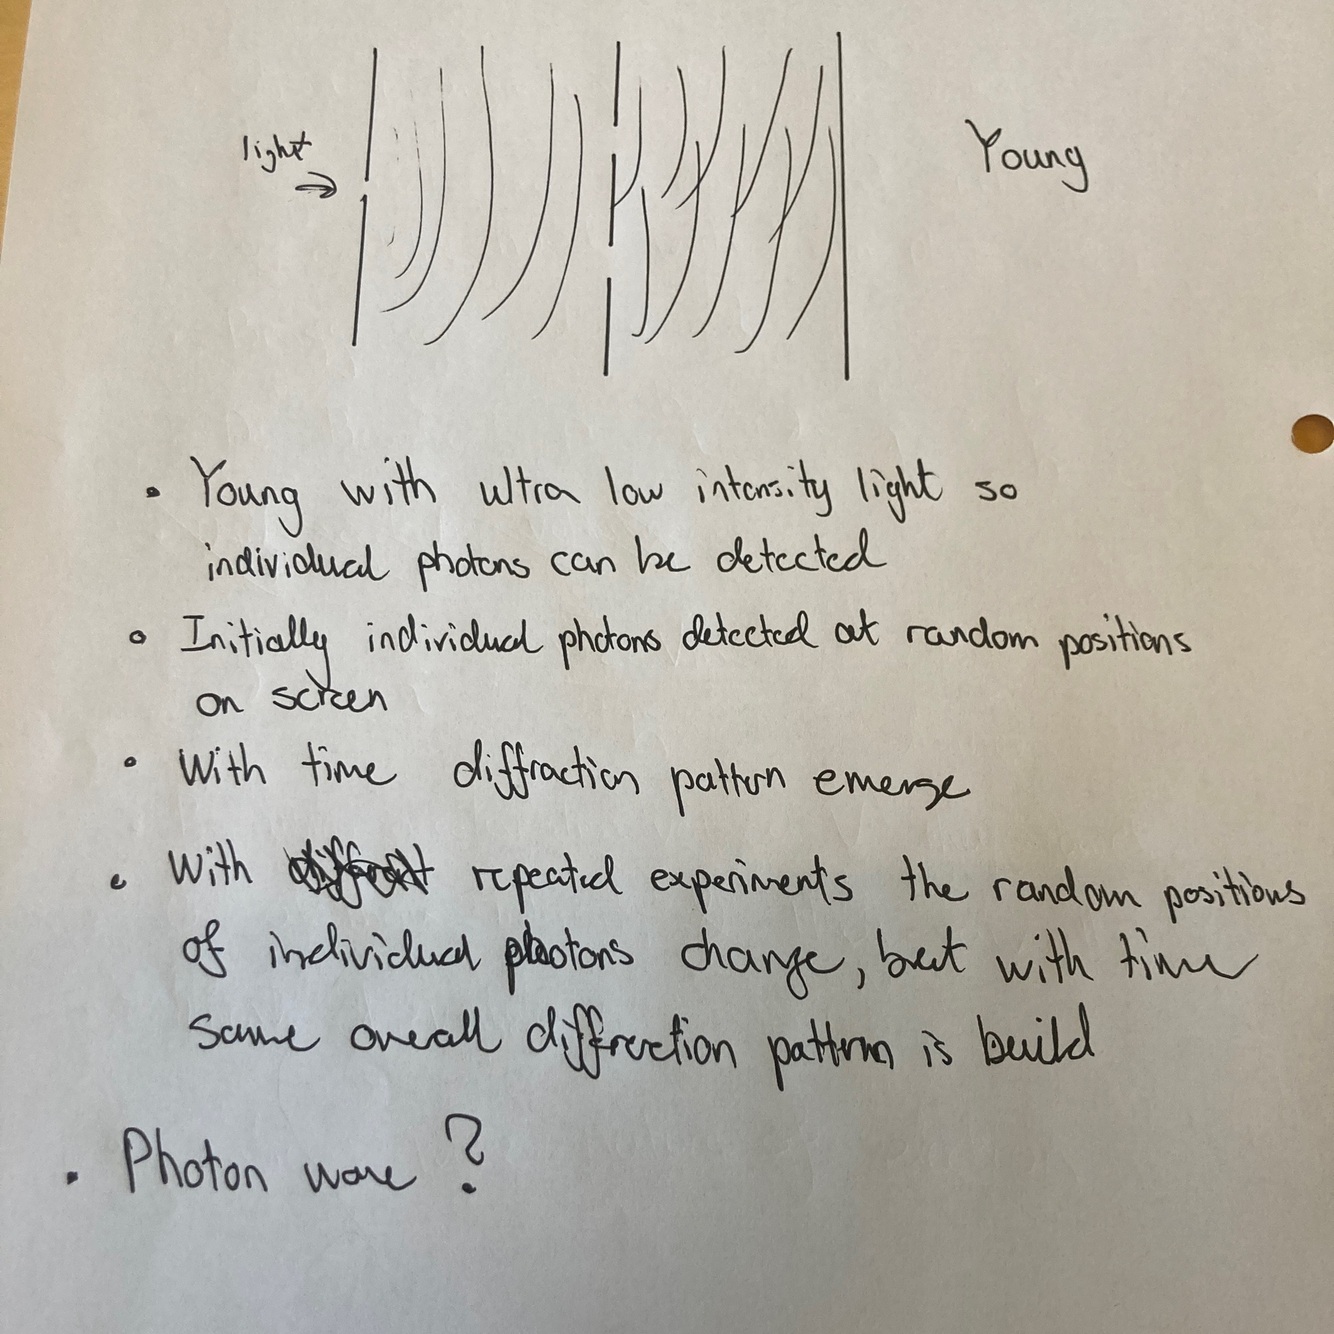 light
Young
• Young with ultra low intensity light so
individual photons can be detected
• Initially individual photons detected at random positions
on screen
• With time diffraction pattern emerge
• With repeated experiments the random positions
of individual photons change, but with time
same overall diffraction pattern is build
• Photon wave ?